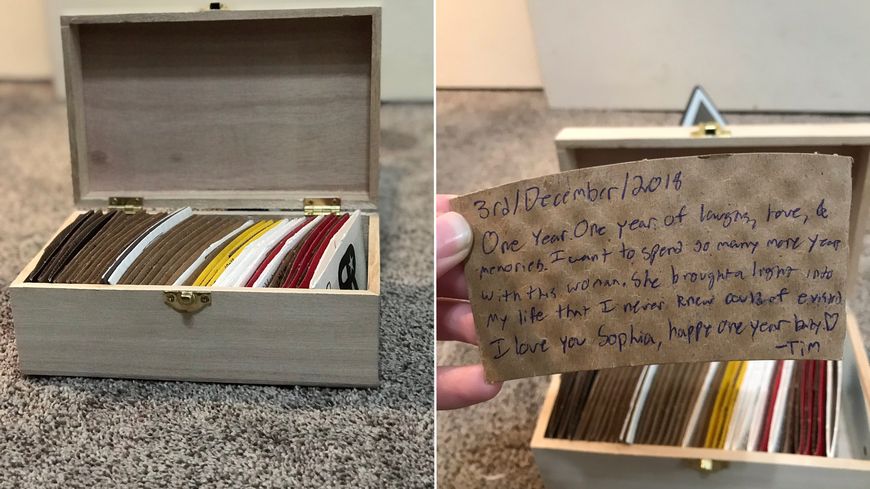 3rd/December/2018
One Year. One year of laughs, love, &
memories. I want to spend so many more years
with this woman. She brought a light into
my life that I never knew could of existed
I love you Sophia, happy one year baby ♡
-Tim